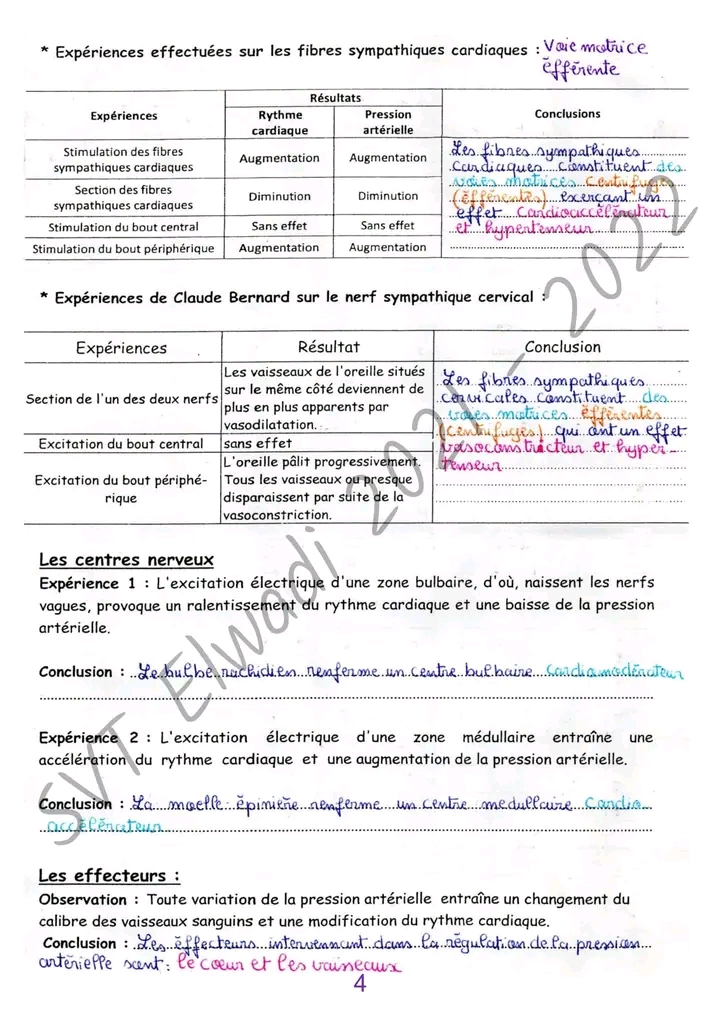 * Expériences effectuées sur les fibres sympathiques cardiaques : Voie motrice
éfférente
Expériences
Résultats
Conclusions
Rythme cardiaque
Pression artérielle
Stimulation des fibres sympathiques cardiaques
Augmentation
Augmentation
Section des fibres sympathiques cardiaques
Diminution
Diminution
Stimulation du bout central
Sans effet
Sans effet
Stimulation du bout périphérique
Augmentation
Augmentation
Les fibres sympathiques
Cardiaques constituent des
voies motrices Centrifuge
(éfférentes) exerçant un
effet Cardioaccélérateur
et hypertenseur
* Expériences de Claude Bernard sur le nerf sympathique cervical :
Expériences
Résultat
Conclusion
Section de l'un des deux nerfs
Les vaisseaux de l'oreille situés
sur le même côté deviennent de
plus en plus apparents par
vasodilatation.
Excitation du bout central
sans effet
Excitation du bout périphé-
rique
L'oreille pâlit progressivement.
Tous les vaisseaux ou presque
disparaissent par suite de la
vasoconstriction.
Les fibres sympathiques
cervicales constituent des
voies motrices éfférentes
(centrifuges) qui ont un effet
vasoconstricteur et hyper-
tenseur
Les centres nerveux
Expérience 1 : L'excitation électrique d'une zone bulbaire, d'où, naissent les nerfs
vagues, provoque un ralentissement du rythme cardiaque et une baisse de la pression
artérielle.
Conclusion : Le bulbe rachidien renferme un centre bulbaire Cardiomodérateur
Expérience 2 : L'excitation électrique d'une zone médullaire entraîne une
accélération du rythme cardiaque et une augmentation de la pression artérielle.
Conclusion : La moelle épinière renferme un centre medullaire Cardio
accélérateur
Les effecteurs :
Observation : Toute variation de la pression artérielle entraîne un changement du
calibre des vaisseaux sanguins et une modification du rythme cardiaque.
Conclusion : Les effecteurs intervennant dans la régulation de la pression
artérielle sont : le cœur et les vaisseaux
4
SVT Elwadi 2021 - 2022